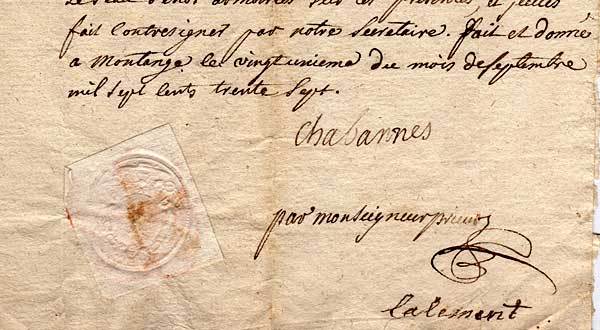 Le sceau de nos armoiries sur ces presentes, et icelles
fait Contresigner par notre Secretaire. fait et donné
a Montange le vingt unieme du mois de septembre
mil sept Cents trente Sept.
Chabannes
par monseigneur
Calement